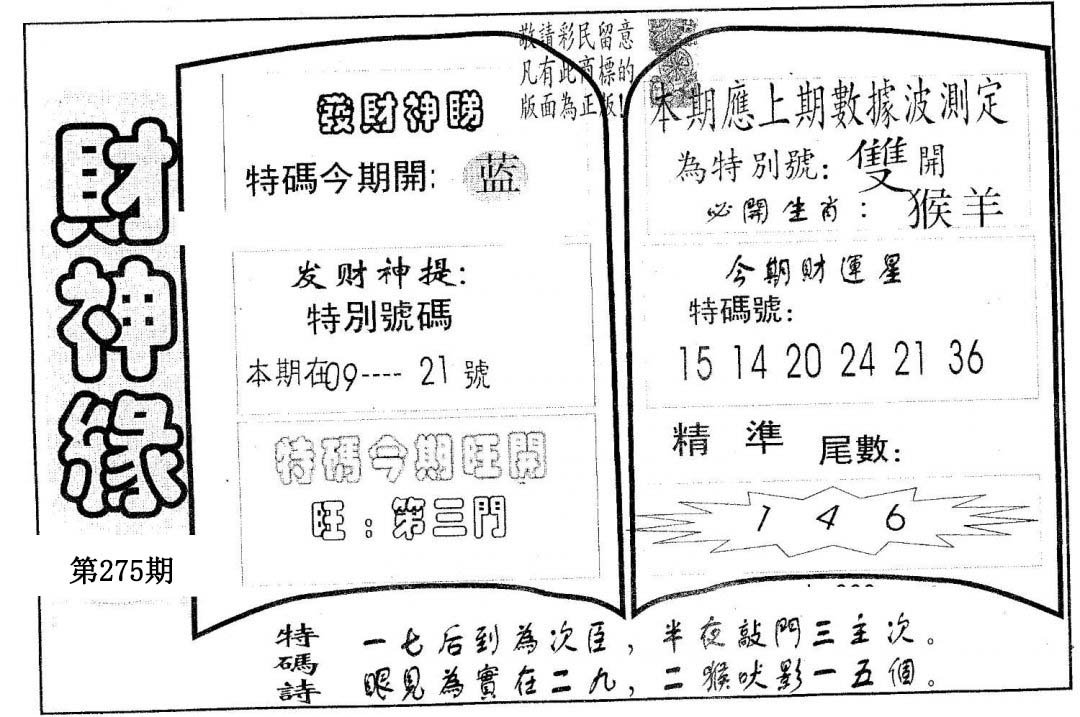 敬請彩民留意
凡有此商標的
版面為正版!
財神緣
第275期
發財神睇
特碼今期開: 藍
发财神提:
特別號碼
本期在09----21號
特碼今期旺開
旺:第三門
本期應上期數據波測定
為特別號: 雙開
必開生肖: 猴羊
今期財運星
特碼號:
15 14 20 24 21 36
精準 尾數:
1 4 6
特碼詩
一七后到為次臣,半夜敲門三主次。
眼見為實在二九,二猴吠影一五個。